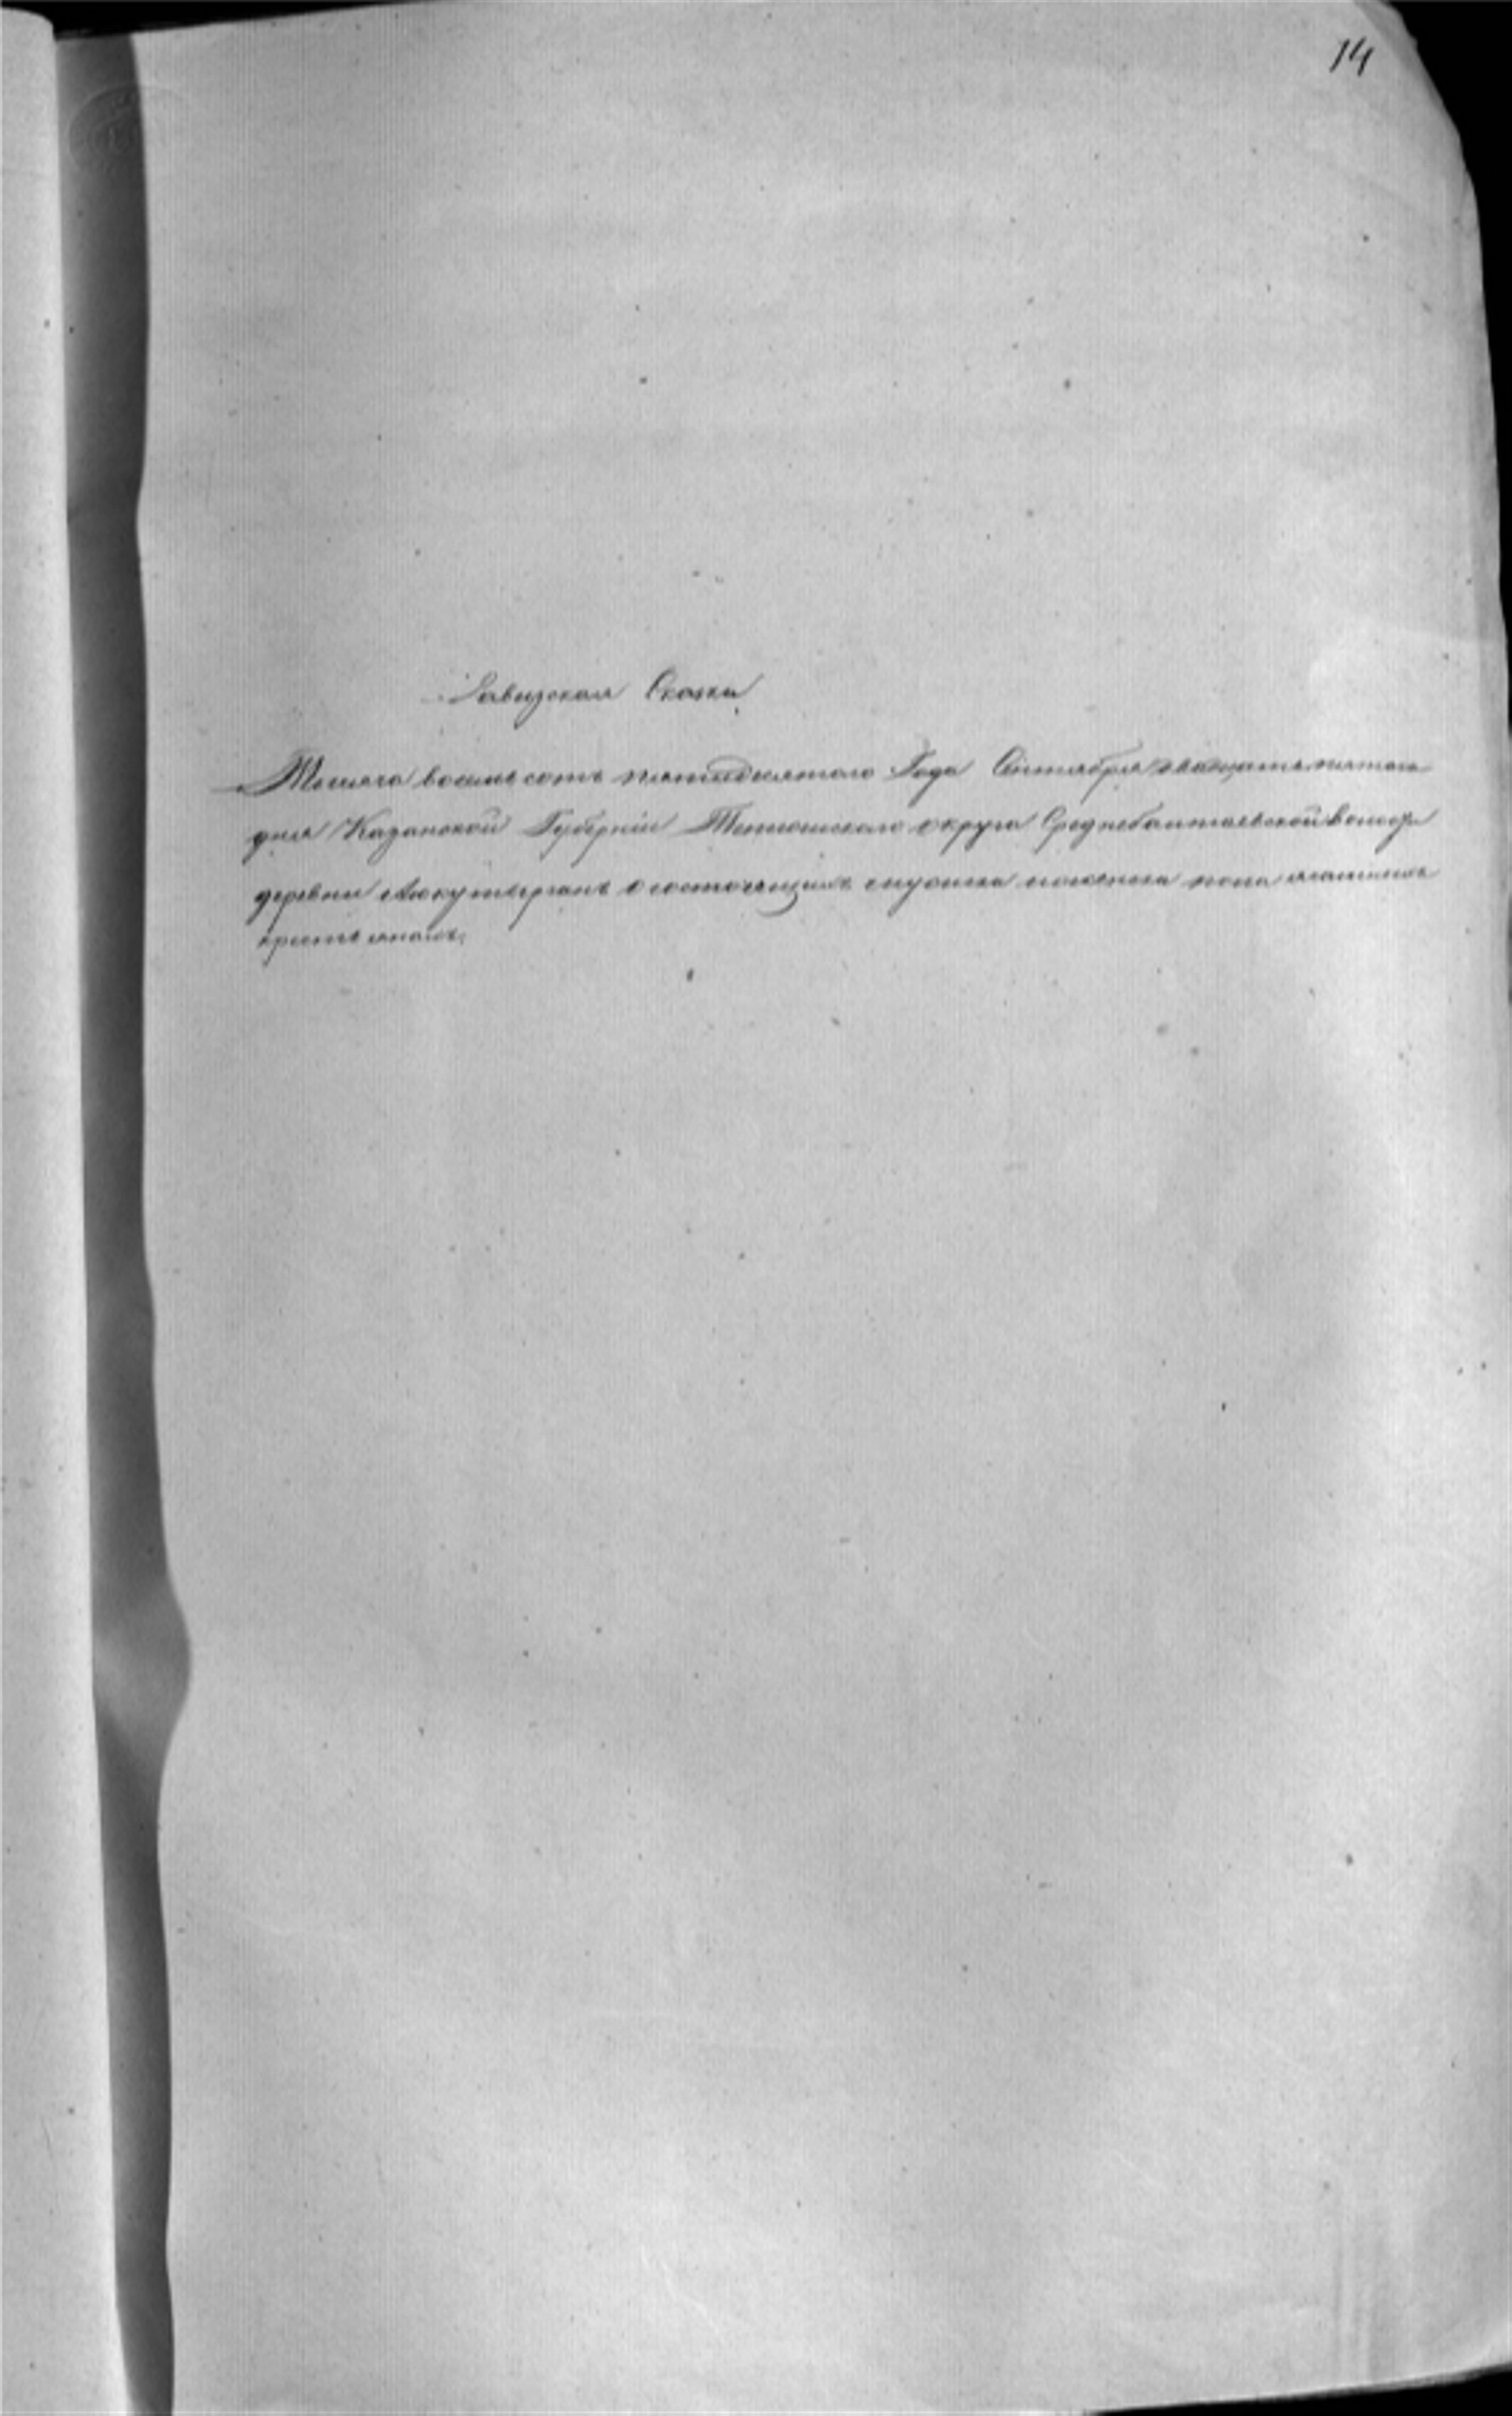 14
Ревизская Сказка
Тысяча восемь сотъ пятидесятого Года Сентября двадцать пятого
дня Казанской Губерніи Тетюшского округа Среднебалтаевской волости
деревни о состоящихъ мужеска и женска пола
крестьянахъ.